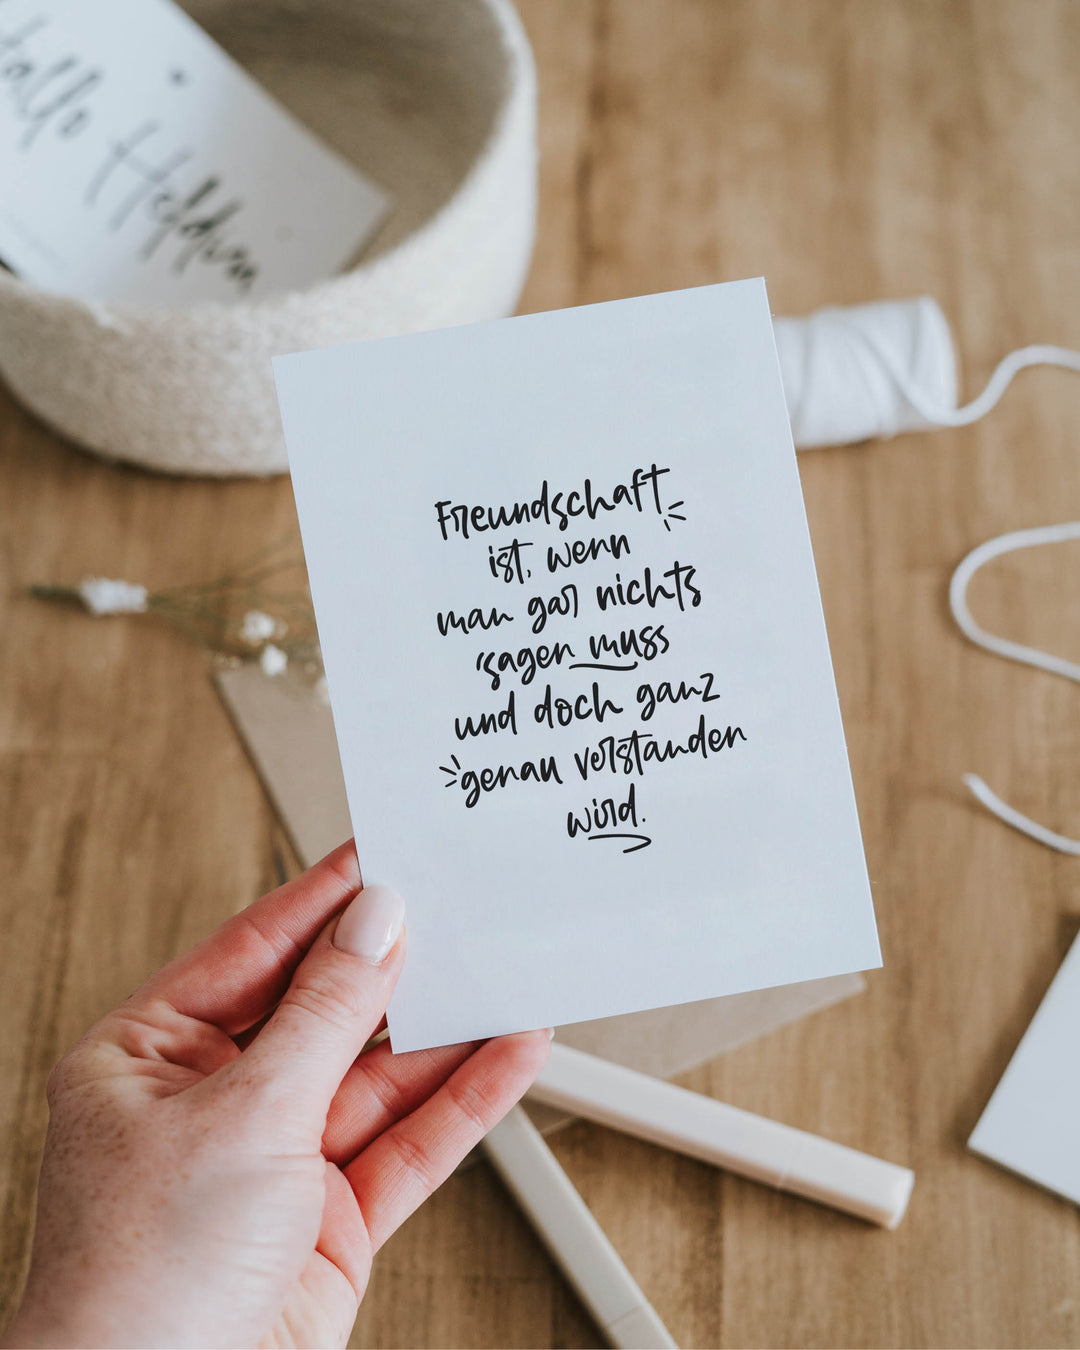 Hallo
Freundschaft
ist, wenn
man gar nichts
sagen muss
und doch ganz
genau verstanden
wird.